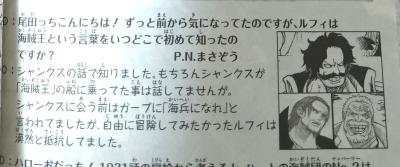 D：尾田っちこんにちは！ ずっと前から気になってたのですが、ルフィは
海賊王という言葉をいつどこで初めて知ったの
ですか？ P.N.まさぞう
O：シャンクスの話で知りました。もちろんシャンクスが
「海賊王」の船に乗ってた事は話してませんが。
シャンクスに会う前はガープに「海兵になれ」と
言われてましたが、自由に冒険してみたかったルフィは
漠然と抵抗してました。